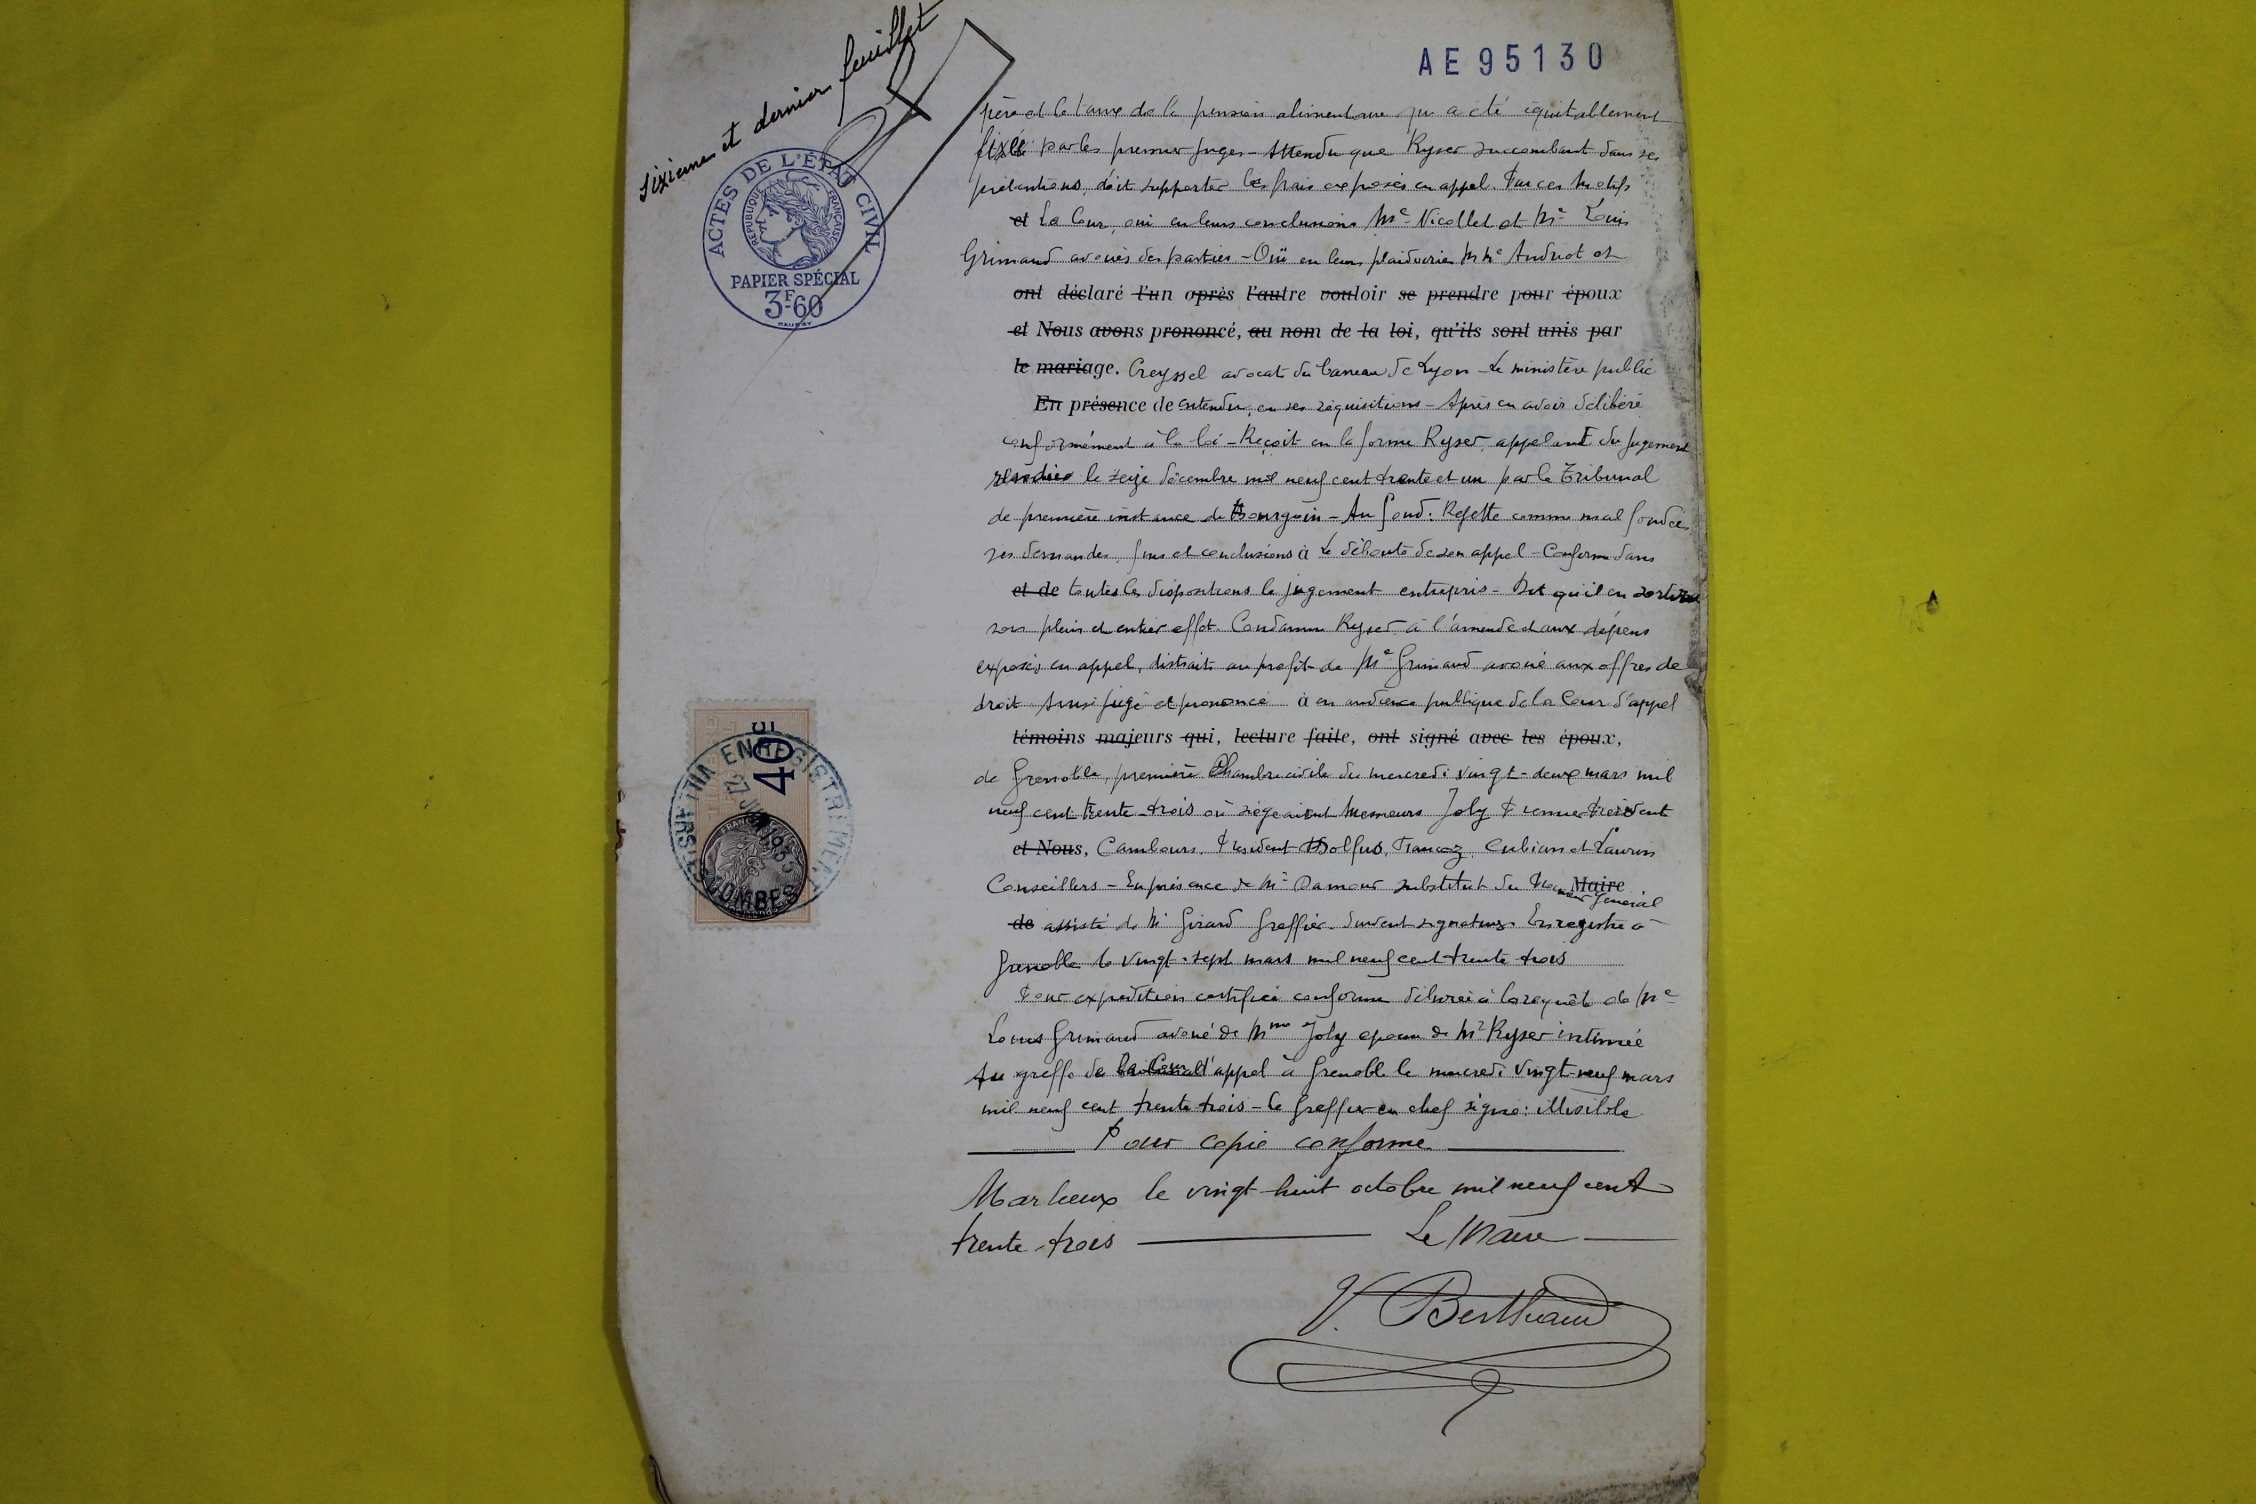 sixième et dernier feuillet
AE 95130
ACTES DE L'ÉTAT CIVIL
RÉPUBLIQUE FRANÇAISE
PAPIER SPÉCIAL
3F-60
père et le taux de la pension alimentaire qui a été équitablement
fixée par les premier juges - Attendu que Ryser succombant dans ses
prétentions, doit supporter les frais exposés en appel. Par ces motifs
et La Cour, oui en leurs conclusions Me Nicollet et Me Louis
Grimaud avoués des parties - Ouï en leurs plaidoiries MMe Andriot et
ont déclaré l'un après l'autre vouloir se prendre pour époux
et Nous avons prononcé, au nom de la loi, qu'ils sont unis par
le mariage. Creyssel avocats du barreau de Lyon - Le ministère public
En présence de entendu, en ses réquisitions - Après en avoir délibéré
conformément à la loi - Reçoit en la forme Ryser, appelant du jugement
le seize décembre mil neuf cent trente et un par le Tribunal
de première instance de Bourgoin - Au fond. Rejette comme mal fondées
ses demandes fins et conclusions à Le déboute de son appel - Confirme dans
et de toutes les dispositions le jugement entrepris - Dit qu'il en sortira
son plein et entier effet. Condamne Ryser à l'amende et aux dépens
exposés en appel, distraits au profit de Me Grimaud avoué aux offres de
droit Ainsi jugé et prononcé à en audience publique de la Cour d'appel
témoins majeurs qui, lecture faite, ont signé avec les époux,
de Grenoble, première Chambre civile du mercredi vingt-deux mars mil
neuf cent trente-trois où siégeaient Messieurs Joly Premier Président
et Nous, Cambours, Président Dolfus, Francoz, Cubian et Laurens
Conseillers - En présence de Mr Damour substitut du Procureur Général Maire
de assisté de Mr Girard Greffier. Suivent signatures Enregistré à
Grenoble le vingt-sept mars mil neuf cent trente trois
Pour expédition certifiée conforme délivrée à la requête de Me
Louis Grimaud avoué de Mme Joly epouse de Mr Ryser intimée
Au greffe de la Cour d'appel à Grenoble le mercredi vingt-neuf mars
mil neuf cent trente trois - Le Greffier en chef signé: illisible
Pour copie conforme
Marlieux le vingt-huit octobre mil neuf cent
trente-trois Le Maire
V. Berthaud
ENREGISTREMENT
40
1933
DOMBES